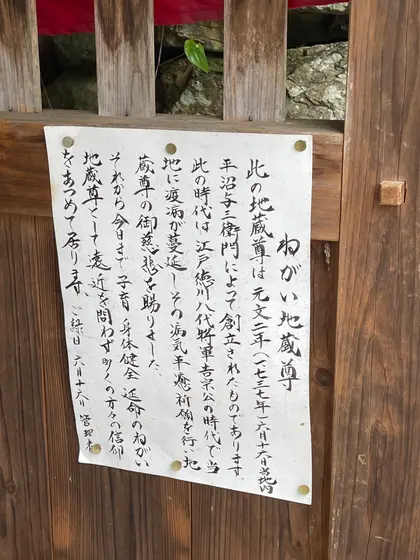 ねがい地蔵尊
此の地蔵尊は元文二年(一七三七年)六月十六日当町内
平沼与三衛門によって創立されたものであります。
此の時代は江戸徳川八代将軍吉宗公の時代で当
地に疫病が蔓延しその病気平癒祈願を行い地
蔵尊の御慈悲を賜りました。
それから今日まで子育、身体健全、延命のねがい
地蔵尊として遠近を問わず多くの方々の信仰
をあつめて居ります。 ご縁日 六月十六日 管理者